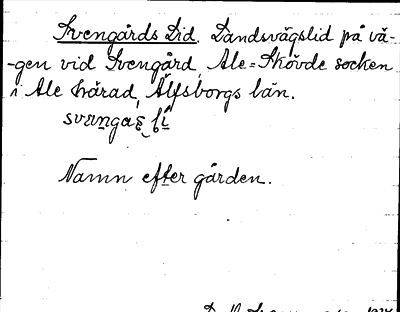 Svengårds Lid. Landsvägslid på vä-
-gen vid Svengård, Ale-Skövde socken
i Ale härad, Älfsborgs län.
Namn efter gården.